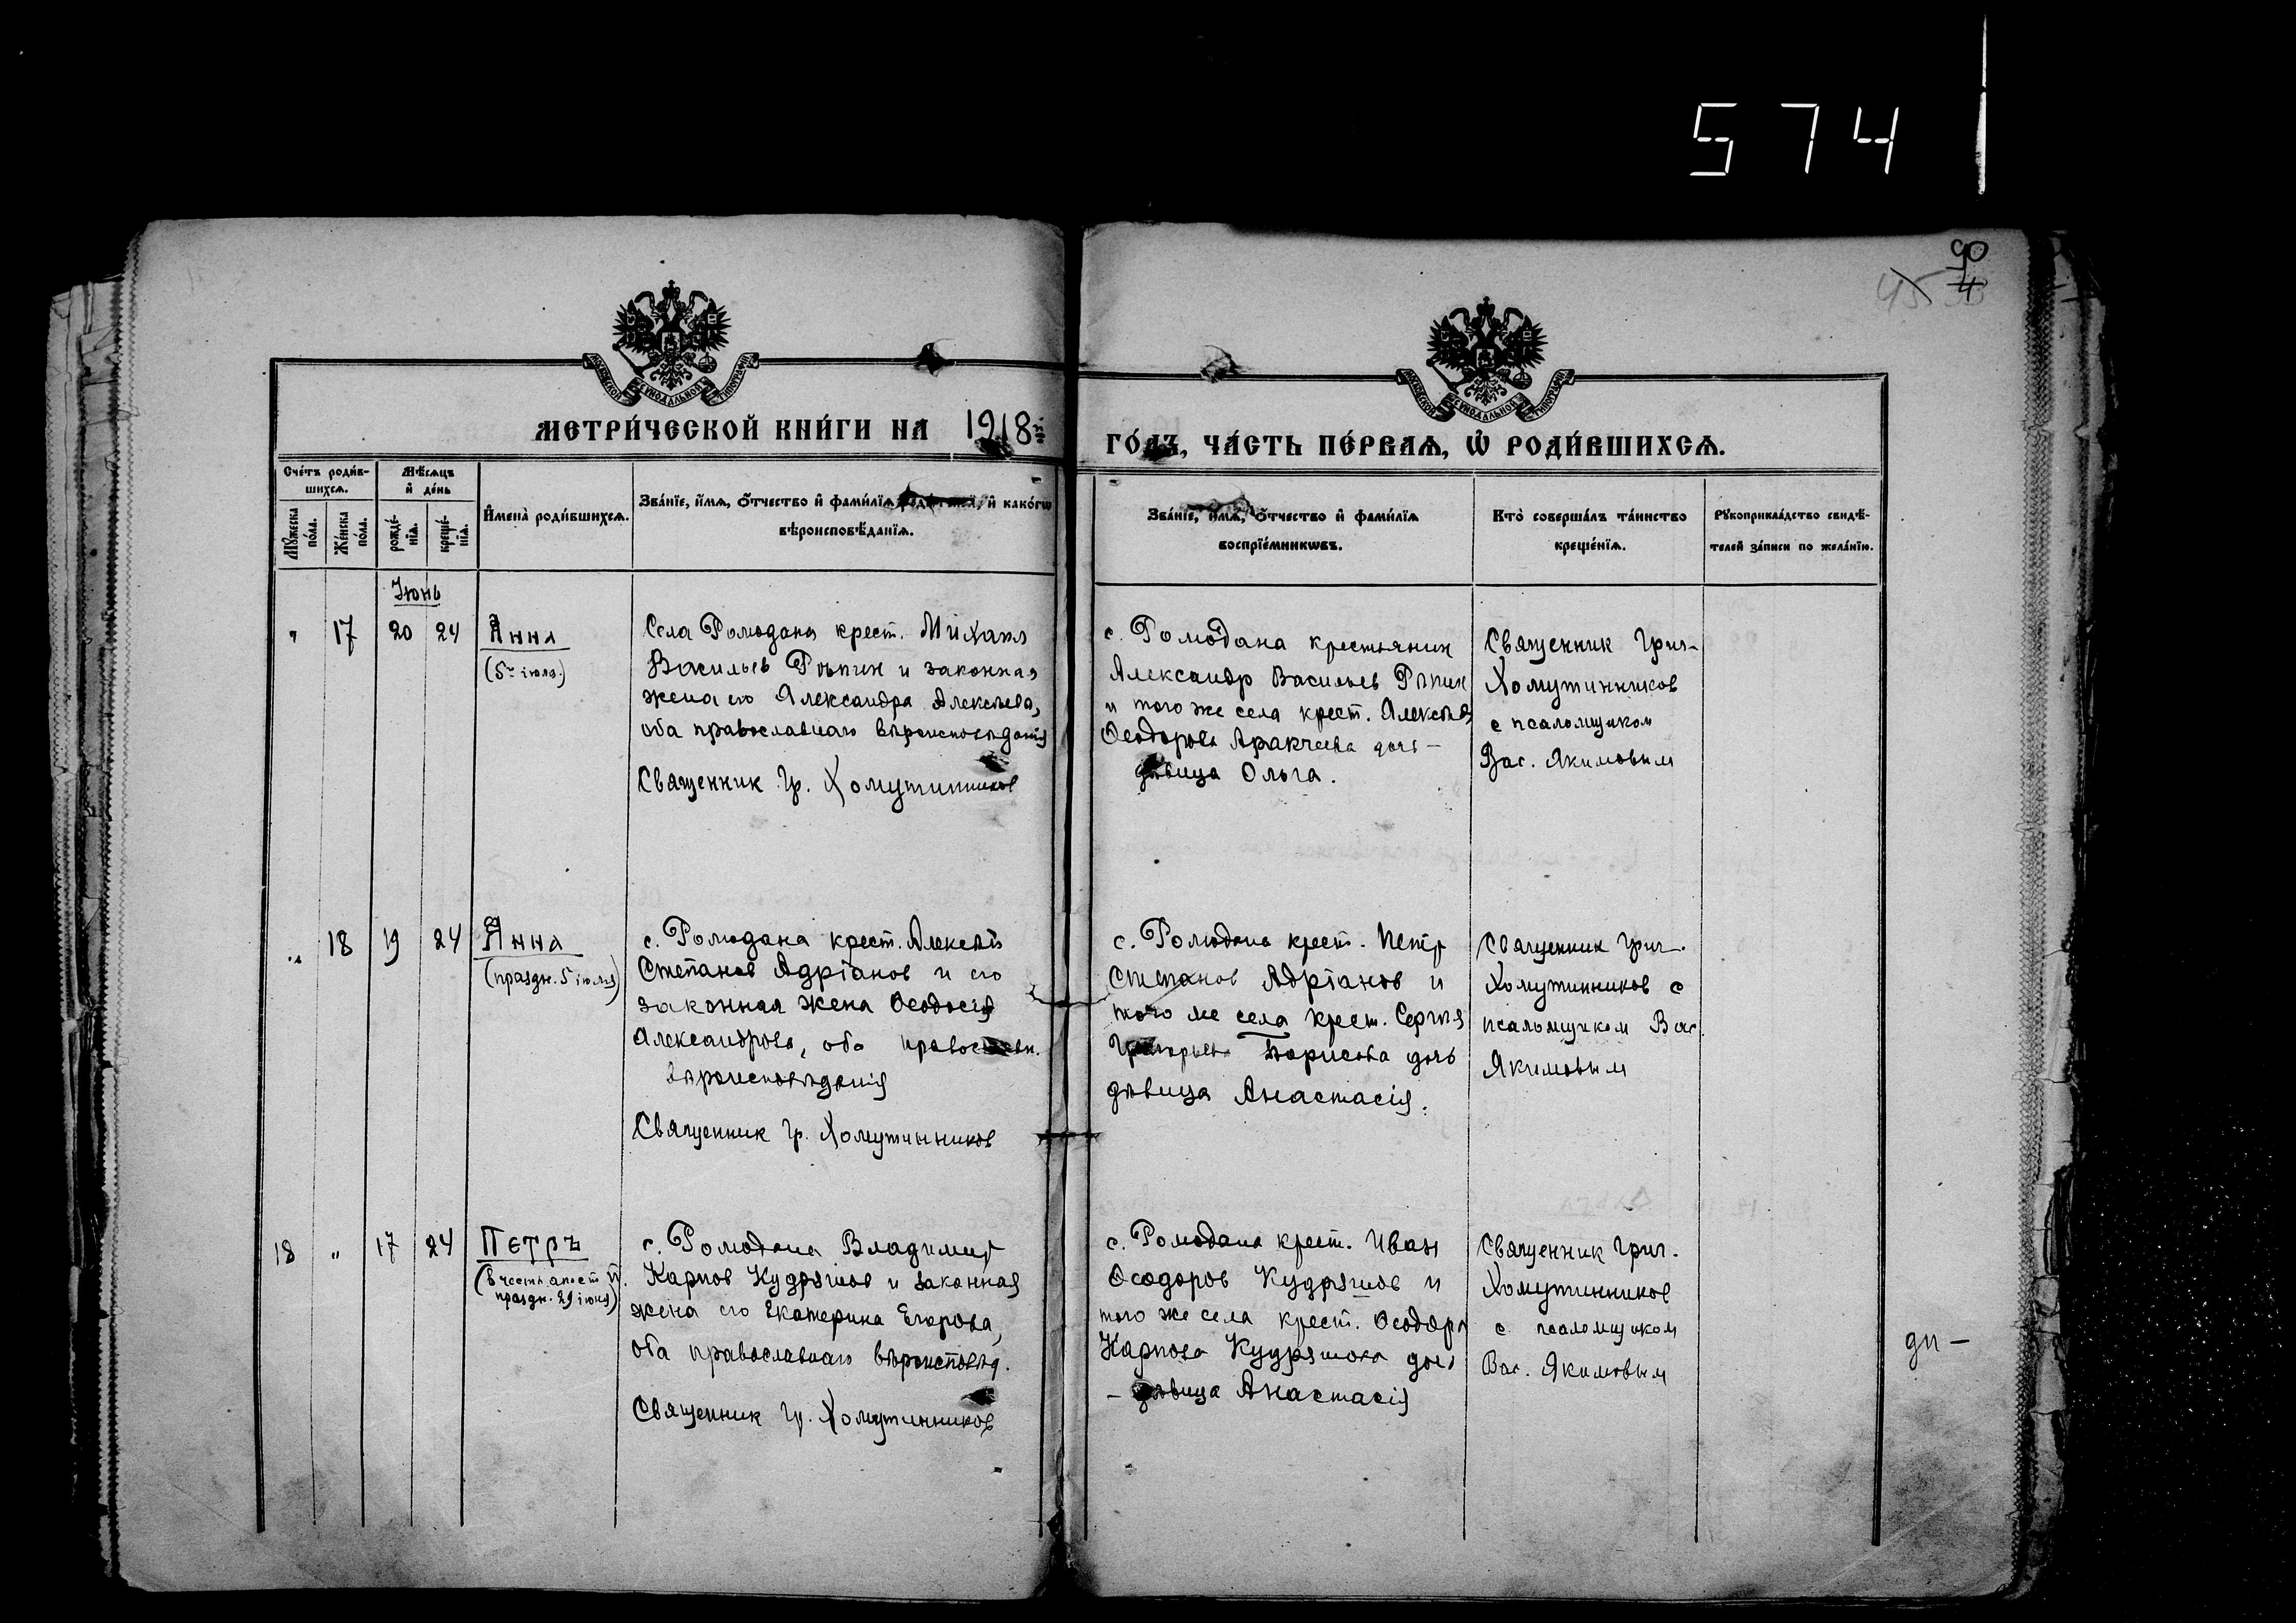 574
90
4
45
МОСКОВСКОЙ СѴНОДАЛЬНОЙ ТИПОГРАФІИ
МОСКОВСКОЙ СѴНОДАЛЬНОЙ ТИПОГРАФІИ
МЕТРИ́ЧЕСКОЙ КНИ́ГИ НА 1918й
ГО́ДЪ, ЧА́СТЬ ПЕ́РВАѦ, Ѡ҆ РОДИ́ВШИХСѦ.
Сче́тъ роди́в-
шихсѧ.
Мꙋ́жеска
по́ла.
Же́нска
по́ла.
Мѣ́сѧцъ
и҆ де́нь
рожде́-
нїѧ.
креще́-
нїѧ.
И҆мена̀ роди́вшихсѧ.
Зва́нїе, и҆́мѧ, ѻ҆́тчество и҆ фами́лїѧ роди́телей, и҆ како́гѡ
вѣроисповѣ́данїѧ.
Зва́нїе, и҆́мѧ, ѻ҆́тчество и҆ фами́лїѧ
воспрїе́мникѡвъ.
Кто̀ соверша́лъ та́инство
креще́нїѧ.
Рꙋкоприкла́дство свидѣ́-
телей за́писи по жела́нїю.
Іюнь
" 17 20 24
Анна
(5го іюля.)
Села Ромодана крест. Михаил
Васильев Рѣпин и законная
жена его Александра Алексѣева,
оба православнаго вѣроисповѣданія
Священник Гр. Хомутинников
с. Ромодана крестьянин
Александр Васильев Рѣпин
и того же села крест. Алексѣя
Ѳеодорова Аракчеева дочь –
дѣвица Ольга.
Священник Григ.
Хомутинников
с псаломщиком
Вас. Якимовым
" 18 19 24
Анна
(праздн. 5 іюля)
с. Ромодана крест. Алексѣй
Степанов Адріанов и его
законная жена Ѳеодосія
Александрова, оба православн.
вѣроисповѣданія
Священник Гр. Хомутинников
с. Ромодана крест. Петр
Степанов Адріанов и
того же села крест. Сергѣя
Григорьева Борисова дочь
дѣвица Анастасія.
Священник Григ.
Хомутинников с
псаломщиком Вас.
Якимовым
18 " 17 24
Петръ
(в честь апост. П.
праздн. 29 іюня)
с. Ромодана Владимир
Карпов Кудряшов и законная
жена его Екатерина Егорова,
оба православнаго вѣроисповѣд.
Священник Гр. Хомутинников
с. Ромодана крест. Иван
Ѳеодоров Кудряшов и
того же села крест. Ѳеодора
Карпова Кудряшова дочь
– дѣвица Анастасія
Священник Григ.
Хомутинников
с псаломщиком
Вас. Якимовым